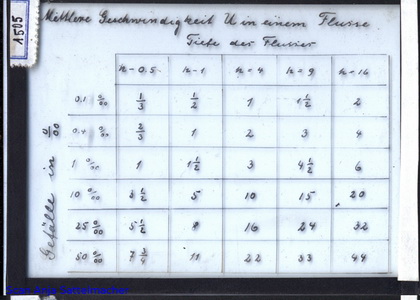 1505
Mittlere Geschwindigkeit U in einem Flusse
Tiefe des Flusses
Gefälle in 0/00
r = 0.5 r = 1 r = 4 r = 9 r = 16
0.1 0/00 1/3 1/2 1 1 1/2 2
0.4 0/00 2/3 1 2 3 4
1 0/00 1 1 1/2 3 4 1/2 6
10 0/00 3 1/2 5 10 15 20
25 0/00 5 1/2 8 16 24 32
50 0/00 7 3/4 11 22 33 44